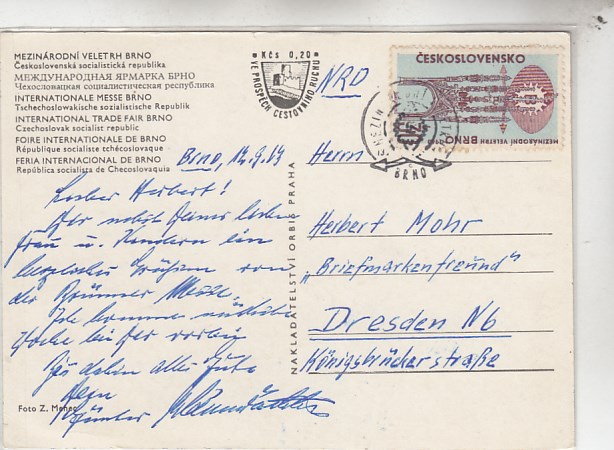 MEZINÁRODNÍ VELETRH BRNO
Československá socialistická republika
МЕЖДУНАРОДНАЯ ЯРМАРКА БРНО
Чехословацкая социалистическая республика
INTERNATIONALE MESSE BRNO
Tschechoslowakische sozialistische Republik
INTERNATIONAL TRADE FAIR BRNO
Czechoslovak socialist republic
FOIRE INTERNATIONALE DE BRNO
République socialiste tchécoslovaque
FERIA INTERNACIONAL DE BRNO
República socialista de Checoslovaquia
Kčs 0,20
VE PROSPĚCH CESTOVNÍHO RUCHU
NRD
ČESKOSLOVENSKO
MEZINÁRODNÍ VELETRH BRNO
BRNO
Brno, 12.9.69
Lieber Herbert!
Dir nebst Deiner lieben
Frau u. Kindern ein
herzliches Grüßen von
der Brünner Messe.
Ich komme nächste
Woche bei Dir vorbei
Bis dahin alles Gute
Dein
Günter
Foto Z. Menec
NAKLADATELSTVÍ ORBIS PRAHA
Herrn
Herbert Mohr
„Briefmarkenfreund"
Dresden N6
Königsbrückerstraße